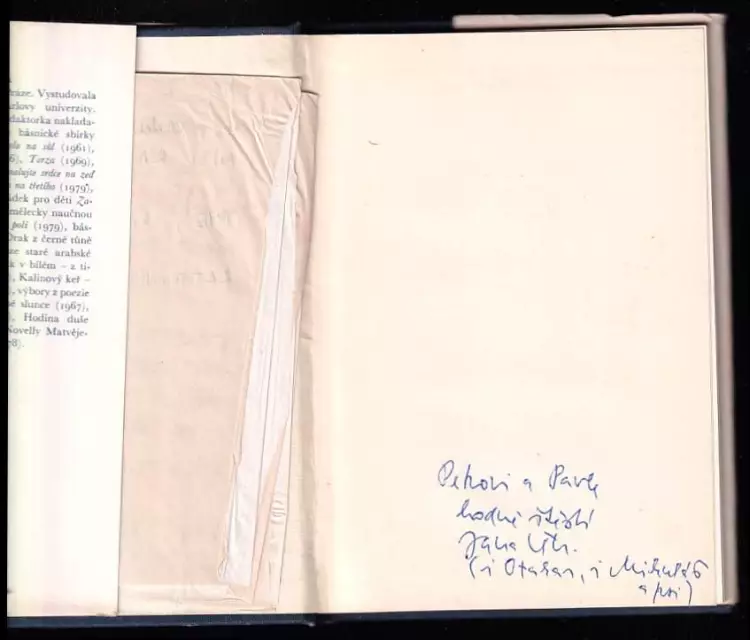 raze. Vystudovala
rlovy univerzity.
daktorka naklada-
básnické sbírky
na sůl (1961),
6), Torza (1969),
malujte srdce na zeď
na třetího (1979),
ádek pro děti Za-
mělecky naučnou
poli (1979), bás-
Drak z černé tůně
ze staré arabské
k v bílém – z ti-
, Kalinový keř –
, výbory z poezie
é slunce (1967),
. Hodina duše
Novelly Matvěje-
8).
Petrovi a Pavle
hodně štěstí
Jana Úh.
(i Otakar, i Mikuláš
a psi)